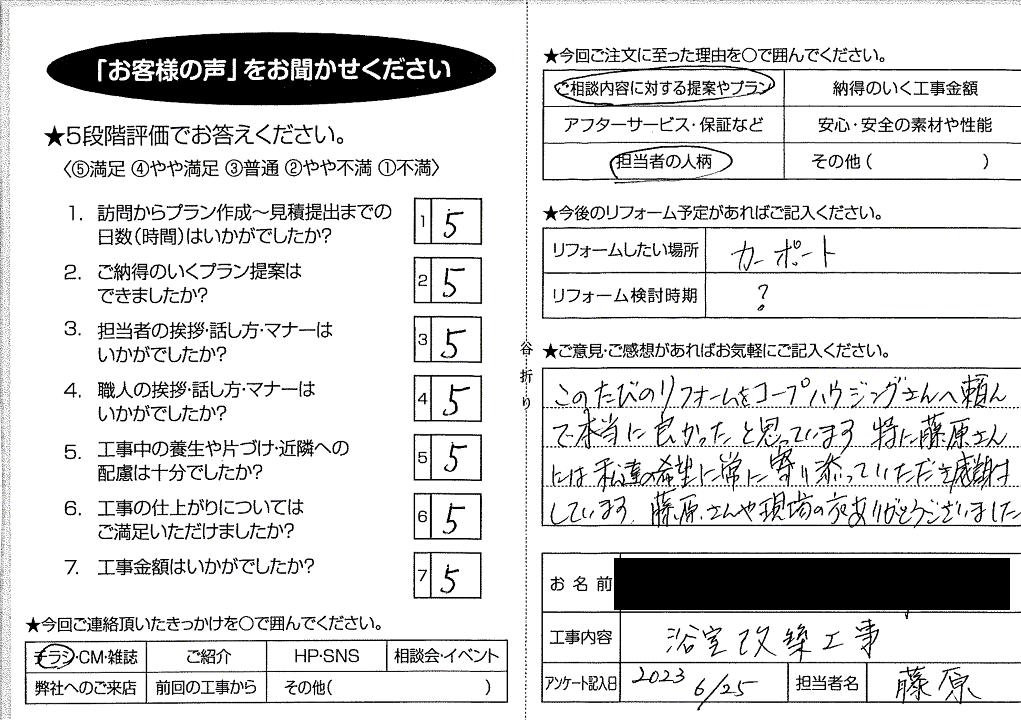 「お客様の声」をお聞かせください
★5段階評価でお答えください。
〈⑤満足 ④やや満足 ③普通 ②やや不満 ①不満〉
1. 訪問からプラン作成～見積提出までの
日数(時間)はいかがでしたか?
1 5
2. ご納得のいくプラン提案は
できましたか?
2 5
3. 担当者の挨拶・話し方・マナーは
いかがでしたか?
3 5
4. 職人の挨拶・話し方・マナーは
いかがでしたか?
4 5
5. 工事中の養生や片づけ・近隣への
配慮は十分でしたか?
5 5
6. 工事の仕上がりについては
ご満足いただけましたか?
6 5
7. 工事金額はいかがでしたか?
7 5
★今回ご連絡頂いたきっかけを○で囲んでください。
チラシ・CM・雑誌 ご紹介 HP・SNS 相談会・イベント
弊社へのご来店 前回の工事から その他( )
谷折り
★今回ご注文に至った理由を○で囲んでください。
ご相談内容に対する提案やプラン 納得のいく工事金額
アフターサービス・保証など 安心・安全の素材や性能
担当者の人柄 その他( )
★今後のリフォーム予定があればご記入ください。
リフォームしたい場所 カーポート
リフォーム検討時期 ?
★ご意見・ご感想があればお気軽にご記入ください。
このたびのリフォームをコープハウジングさんへ頼ん
で本当に良かったと思っています 特に藤原さん
には私達の希望に常に寄り添っていただき感謝
しています。藤原さんや現場の方ありがとうございました
お名前
工事内容 浴室改築工事
アンケート記入日 2023 6/25 担当者名 藤原